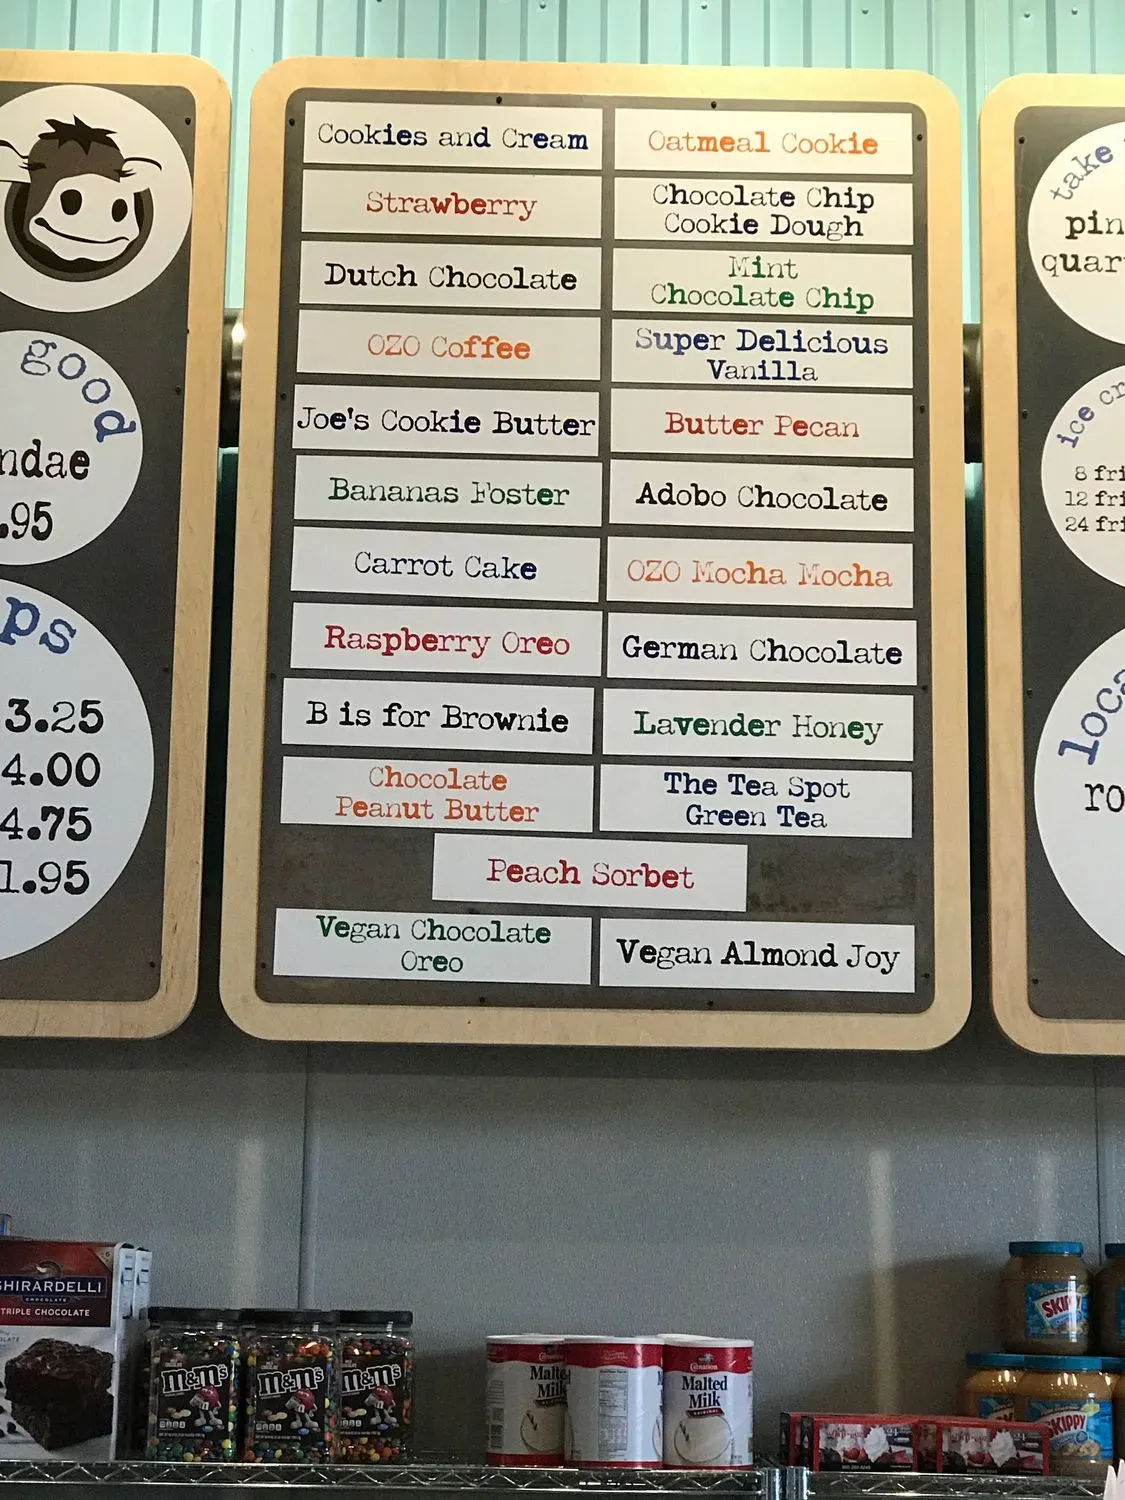 good
.95
ps
3.25
4.00
4.75
1.95
Cookies and Cream
Oatmeal Cookie
Strawberry
Chocolate Chip
Cookie Dough
Dutch Chocolate
Mint
Chocolate Chip
OZO Coffee
Super Delicious
Vanilla
Joe's Cookie Butter
Butter Pecan
Bananas Foster
Adobo Chocolate
Carrot Cake
OZO Mocha Mocha
Raspberry Oreo
German Chocolate
B is for Brownie
Lavender Honey
Chocolate
Peanut Butter
The Tea Spot
Green Tea
Peach Sorbet
Vegan Chocolate
Oreo
Vegan Almond Joy
take
pin
quar
ice cr
8 fri
12 fri
24 fri
loca
ro
GHIRARDELLI
CHOCOLATE
TRIPLE CHOCOLATE
m&m's
m&m's
m&m's
Carnation
Malted
Milk
Carnation
Malted
Milk
ORIGINAL
SKIPPY
SKIPPY